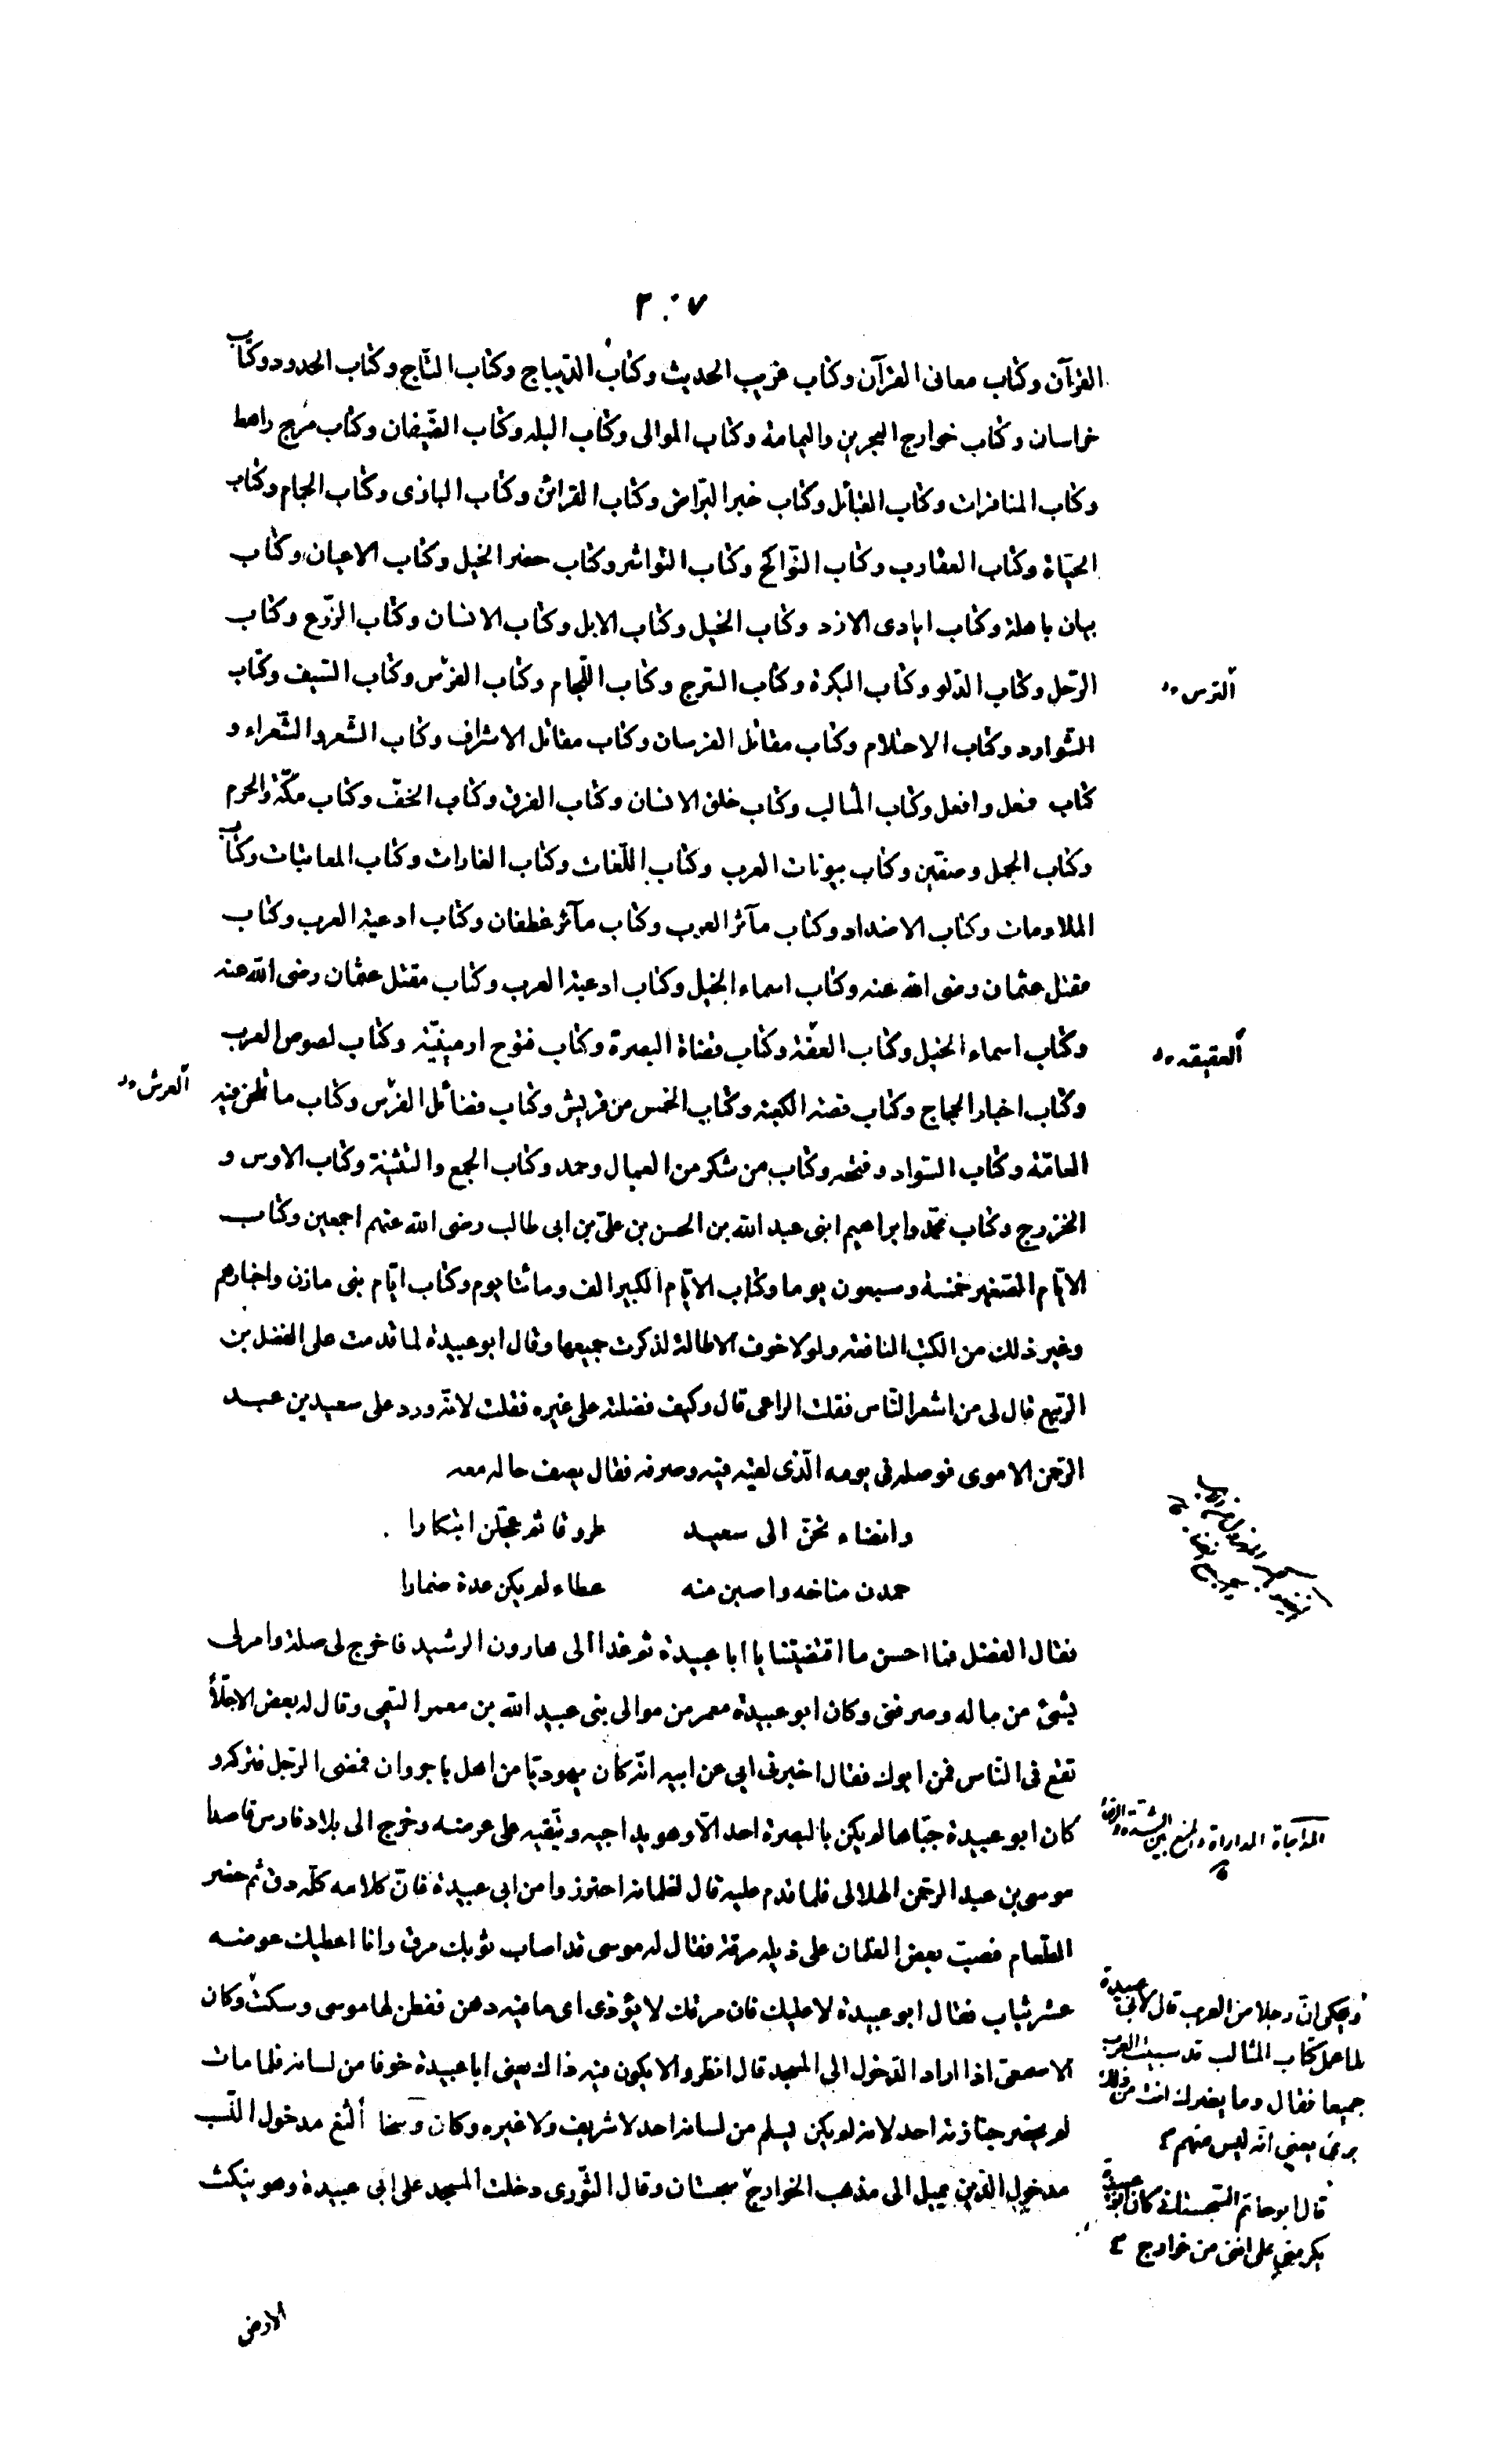 ٢٠٧
القرآن وكتاب معانى القرآن وكتاب غريب الحديث وكتاب الديباج وكتاب التّاج وكتاب الحدود وكتاب
خراسان وكتاب خوارج البحرين واليمامة وكتاب الموالى وكتاب البله وكتاب الضّيفان وكتاب مرج راهط
وكتاب المنافرات وكتاب القبائل وكتاب خبر البرّاض وكتاب القرائن وكتاب البازى وكتاب الحمام وكتاب
الحيّاة وكتاب العقارب وكتاب النّواكح وكتاب النواشر وكتاب حضر الخيل وكتاب الاعيان وكتاب
بهان باهلة وكتاب ايادى الازد وكتاب الخيل وكتاب الابل وكتاب الانسان وكتاب الزّرع وكتاب
الرّحل وكتاب الدّلو وكتاب البكرة وكتاب السّرج وكتاب اللّجام وكتاب الفرس وكتاب السّيف وكتاب
الترس
الشّوارد وكتاب الاحتلام وكتاب مقاتل الفرسان وكتاب مقاتل الاشراف وكتاب الشّعر والشّعراء و
كتاب فعل وافعل وكتاب المثالب وكتاب خلق الانسان وكتاب الفرق وكتاب الخفّ وكتاب مكّة والحرم
وكتاب الجمل وصفّين وكتاب بيوتات العرب وكتاب اللّغات وكتاب الغارات وكتاب المعاتبات وكتاب
الملاومات وكتاب الاضداد وكتاب مآثر العرب وكتاب مآثر غطفان وكتاب ادعية العرب وكتاب
مقتل عثمان رضى الله عنه وكتاب اسماء الخيل وكتاب ادعية العرب وكتاب مقتل عثمان رضى الله عنه
وكتاب اسماء الخيل وكتاب العفّة وكتاب قضاة البصرة وكتاب فتوح ارمينيّة وكتاب لصوص العرب
العقيقه
وكتاب اخبار الحجاج وكتاب قصة الكعبة وكتاب الخمس من قريش وكتاب فضائل الفرس وكتاب ما تلحن فيه
العرش
العامّة وكتاب السّواد وفتحه وكتاب من شكر من العمال وحمد وكتاب الجمع والتثنية وكتاب الاوس و
الخزرج وكتاب محمّد وابراهيم ابنى عبد الله بن الحسن بن علىّ بن ابى طالب رضى الله عنهم اجمعين وكتاب
الايّام الصّغير خمسة وسبعون يوما وكتاب الايّام الكبير الف ومائتا يوم وكتاب ايّام بنى مازن واخبارهم
وغير ذلك من الكتب النافعة ولولا خوف الاطالة لذكرت جميعها وقال ابو عبيدة لما قدمت على الفضل بن
الرّبيع قال لى من اشعر النّاس فقلت الراعى قال وكيف فضلته على غيره فقلت لانّه ورد على سعيد بن عبد
الرّحمن الاموى فوصله فى يومه الّذى لقيه فيه وصرفه فقال يصف حاله معه
وانضاء نحنّ الى سعيد طروقا ثم عجّلن ابتكارا
حمدن مناخه واصبن منه عطاء لم يكن عدة ضمارا
فقال الفضل فما احسن ما اقتضيتنا يا ابا عبيدة ثم غدا الى هارون الرشيد فاخرج لى صلة وامر لى
بشئ من ماله وصرفنى وكان ابو عبيدة معمر من موالى بنى عبيد الله بن معمر التيمى وقال له بعض الاجلّاء
تقع فى النّاس فمن ابوك فقال اخبرنى ابى عن ابيه انّه كان يهوديّا من اهل باجروان فمضى الرّجل فتركه و
كان ابو عبيدة جبّاها لم يكن بالبصرة احد الّا وهو يداجيه ويتّقيه على عرضه وخرج الى بلاد فارس قاصدا
المداجاة المداراة والمنع بين الشدة والرخاء
موسى بن عبد الرّحمن الهلالى فلما قدم عليه قال لغلمانه احترزوا من ابى عبيدة فانّ كلامه كلّه دقّ ثم حضر
الطّعام فصبّ بعض الغلمان على ذيله مرقة فقال له موسى قد اصاب ثوبك مرق وانا اعطيك عوضه
عشر ثياب فقال ابو عبيدة لا عليك فان مرقك لا يؤذى اى ما فيه دهن ففطن لها موسى وسكت وكان
الاصمعىّ اذا اراد الدّخول الى المسجد قال انظروا لا يكون فيه ذاك يعنى ابا عبيدة خوفا من لسانه فلما مات
لم يحضر جنازته احد لانه لم يكن يسلم من لسانه احد لا شريف ولا غيره وكان وسخا ألثغ مدخول النّسب
مدخول الدّين يميل الى مذهب الخوارج سجستان وقال الثّورى دخلت المسجد على ابى عبيدة وهو ينكث
ويحكى انّ رجلا من العرب قال لابى عبيدة
لما عمل كتاب المثالب قد سببت العرب
جميعا فقال وما يضرك انت من ذلك
برئ يعنى انّه ليس منهم
قال ابو حاتم السّجستانى كان ابو عبيدة
يكرمنى على اننى من خوارج
الارض